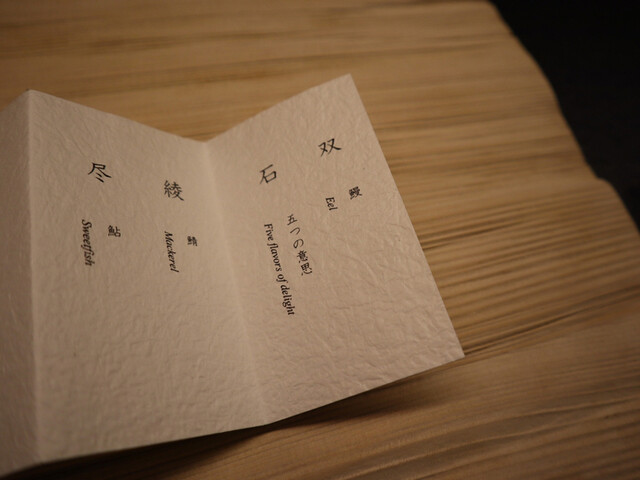 双
鰻
Eel
石
五つの意思
Five flavors of delight
綾
鯖
Mackerel
尽
鮎
Sweetfish